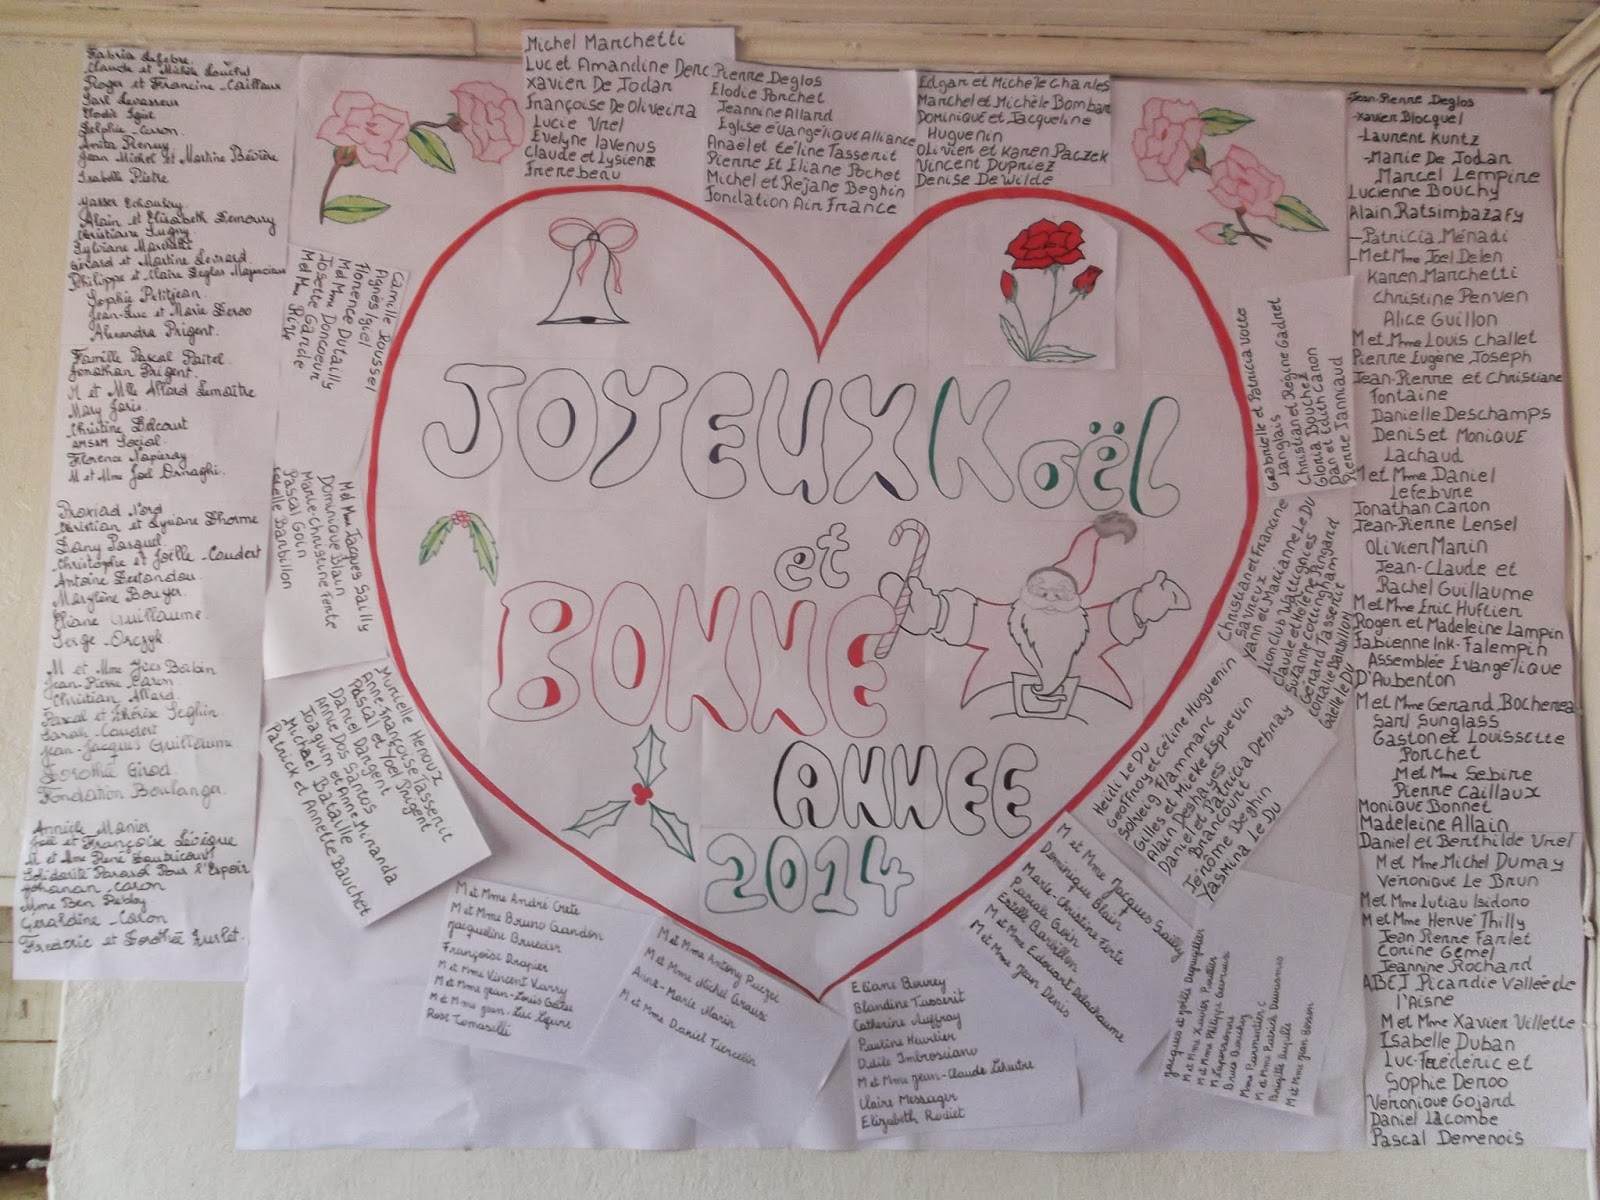 Claude et Michèle
Roger et Francine Cailleux
Sarl Levasseur
Elodie
Delphin Caron
Anita
Jean Michel et Martine Bévière
Isabelle Piètre
Yasser
Alain et Elisabeth Lemoury
Christiane
Sylviane
Gérard et Martine Levrard
Philippe et Claire Deglos
Sophie Petitjean
Jean-Luc et Marie Deroo
Alexandra Prigent.
Famille Pascal
Jonathan Prigent.
M et Mlle Allard Lemaître
Mary Joris
Christine Delcourt
AMSAM Social
Florence
M et Mme Joël Ornaghi.
Proxiad Nord
Christian et Lyriane Dhorme
Dany Pasquel
Christophe et Joëlle Coudert
Antoine
Marylène Bouyer
Eliane Guillaume
Serge Orczyk
M et Mme Yves Balbin
Jean-Pierre Caron
Christian Allard
Pascal et Thérèse Seghin
Sarah Coudert
Jean-Jacques Guillaume
Dorothée Girod
Fondation Boulanger
Annick Manier
et Françoise Lévêque
M et Mme René Boutricourt
Solidarité Pour l'Espoir
Johanan Caron
Mme Ben
Géraldine Caron
Frédéric et Dorothée
Michel Marchetti
Luc et Amandine
Xavier De Jodar
Françoise De Oliveira
Lucie Vrel
Evelyne lavenus
Claude et Lysiene
Frerebeau
Pierre Deglos
Elodie Porchet
Jeannine Allard
Eglise evangélique Alliance
Anael et Céline Tasserit
Pierre Et Eliane Pochet
Michel et Rejane Beghin
Fondation Air France
Edgar et Michele Charles
Marchel et Michèle Bombar
Dominique et Jacqueline
Huguenin
Olivier et Karen Paczek
Vincent Dupriez
Denise De Wilde
Camille Roussel
Agnès Iguel
Florence Dutailly
M et Mme Doncoeur
Josette Garde
M et Mme
M et Mme Jacques Sailly
Dominique Blain
Marie-Christine Ferte
Pascal Goin
Estelle Barbillon
Murielle Heroux
Anne Françoise Tasserit
Pascal et Joel Prigent
Daniel Dargent
Annie Dos Santos
Joaquim et Anne Miranda
Michael Bataille
Patrick et Annette Bauchet
JOYEUX Noël
et
BONNE
ANNEE
2014
Gabrielle et Patricia Votto
Langlais
Christian et Régine Gadret
Gloria Douchez
Dan et Edith Caron
Pierre Jannicaud
Christian et Francine
Savreux
Yann et Marianne Le Du
Lion Club Wattignies
Claude et Hélène Pingard
Suzanne Cottingham
Gérard Tasserit
Coralie Barbillon
Gaelle le Du
Heïdi Le Du
Geoffroy et Céline Huguenin
Solveig Flammanc
Gilles et Mieke Espuevin
Alain Deshayes
Daniel et Patricia Debray
Briancourt
Jérôme Beghin
Yasmina Le Du
M et Mme André Crete
M et Mme Bruno Gandon
Jacqueline Brueder
Françoise Drapier
M et Mme Vincent Varry
M et Mme Jean-Louis
M et Mme Jean Luc
Rose Tomasilli
M et Mme Antony Paczek
M et Mme Michel Giraux
Anne-Marie Marin
M et Mme Daniel Tiercelin
Eliane Burrey
Blandine Tasserit
Catherine Auffray
Pauline Heurtier
Odile Imbrosciano
M et Mme Jean-Claude Lehutre
Claire Messager
Elizabeth Rodiet
M et Mme Jacques Sailly
Dominique Blain
Marie-Christine Ferte
Pascale Goin
Estelle Barbillon
M et Mme Edouard Delachaume
M et Mme Jean Denis
M et Mme Xavier
M et Mme Philippe
Mme Parmentier C
M et Mme Patrick
Brigitte
M et Mme Jean Besson
Jean-Pierre Deglos
-Xavier Blocquel
-Laurent Kuntz
-Marie De Jodar
Marcel Lempire
Lucienne Bouchy
Alain Ratsimbazafy
-Patricia Ménadi
-M et Mme Joel Delen
Karen Marchetti
Christine Penven
Alice Guillon
M et Mme Louis Challet
Pierre Eugène Joseph
Jean-Pierre et Christiane
Fontaine
Danielle Deschamps
Denis et Monique
Lachaud
M et Mme Daniel
Lefebvre
Jonathan Caron
Jean-Pierre Lensel
Olivier Marin
Jean-Claude et
Rachel Guillaume
M et Mme Eric Huftier
Roger et Madeleine Lampin
Fabienne Ink-Falempin
Assemblée Evangélique
D'Aubenton
M et Mme Gerard Bocherea
Sarl Sunglass
Gaston et Louissette
Porchet
M et Mme Sebire
Pierre Caillaux
Monique Bonnet
Madeleine Allain
Daniel et Berthilde Vrel
M et Mme Michel Dumay
Véronique Le Brun
M et Mme Lutiau Isidoro
M et Mme Hervé Thilly
Jean Pierre Farlet
Corine Gemel
Jeannine Rochard
ABEJ Picardie Vallée de
l'Aisne
M et Mme Xavier Villette
Isabelle Duban
Luc-Fréderic et
Sophie Deroo
Véronique Gojard
Daniel Lacombe
Pascal Demenois